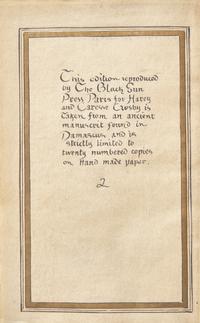 This edition reproduced
by The Black Sun
Press Paris for Harry
and Caresse Crosby is
taken from an ancient
manuscrit found in
Damascus and is
strictly limited to
twenty numbered copies
on Hand made paper.
2